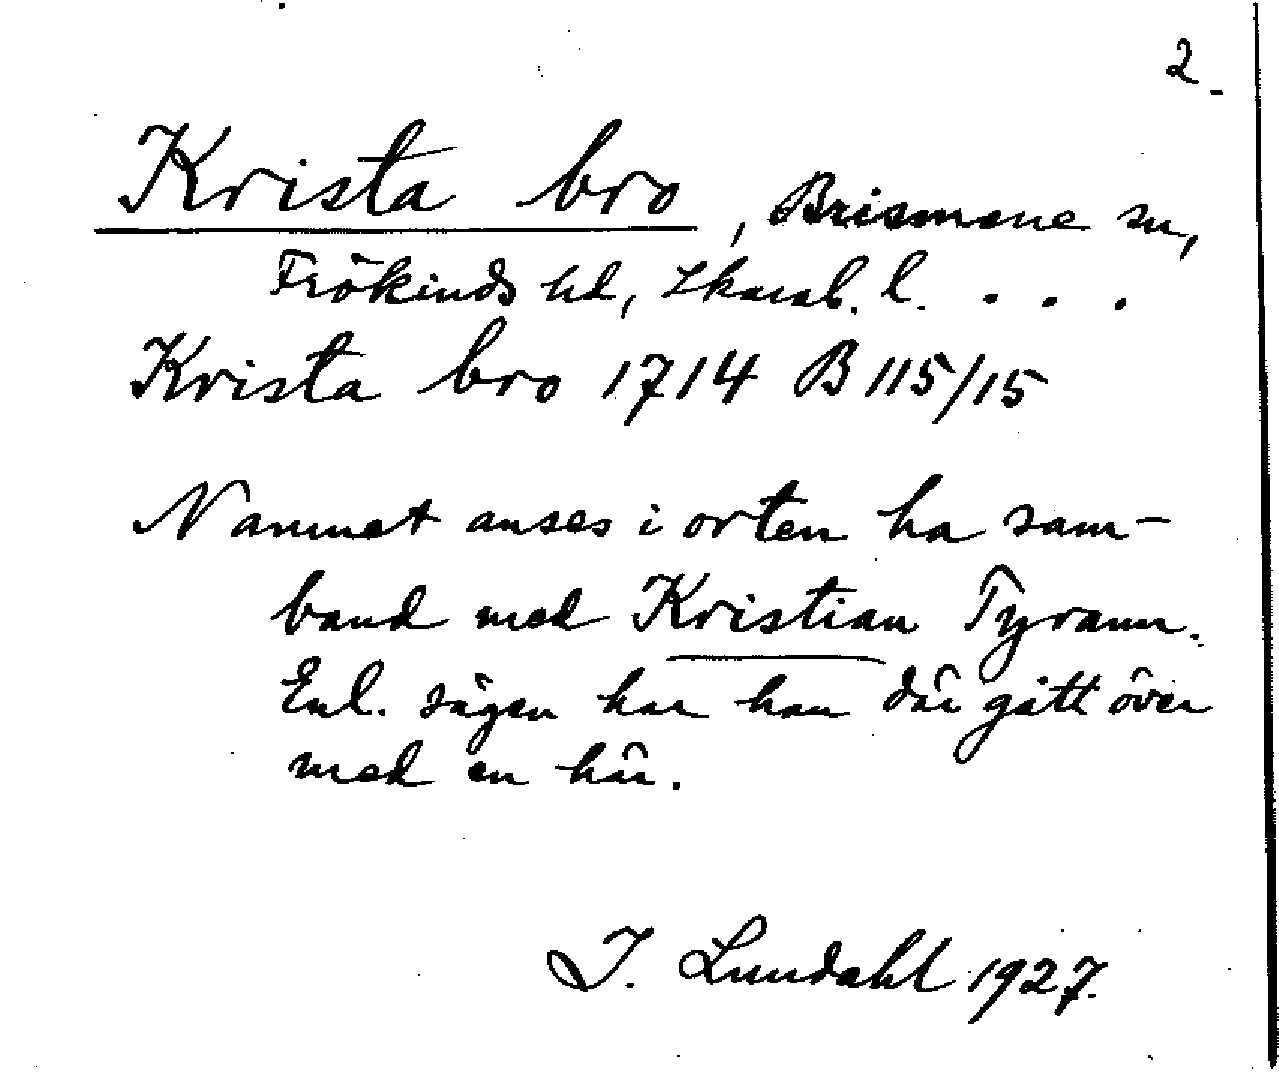 2
Krista bro, Brismene sn,
Frökinds hd, Skarab. l. . . .
Krista bro 1714 B 115/15
Namnet anses i orten ha sam-
band med Kristian Tyrann.
Enl. sägen har han där gått över
med en här.
I. Lundahl 1927.